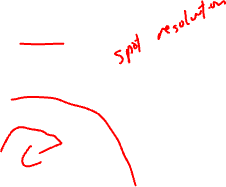 spot resolution